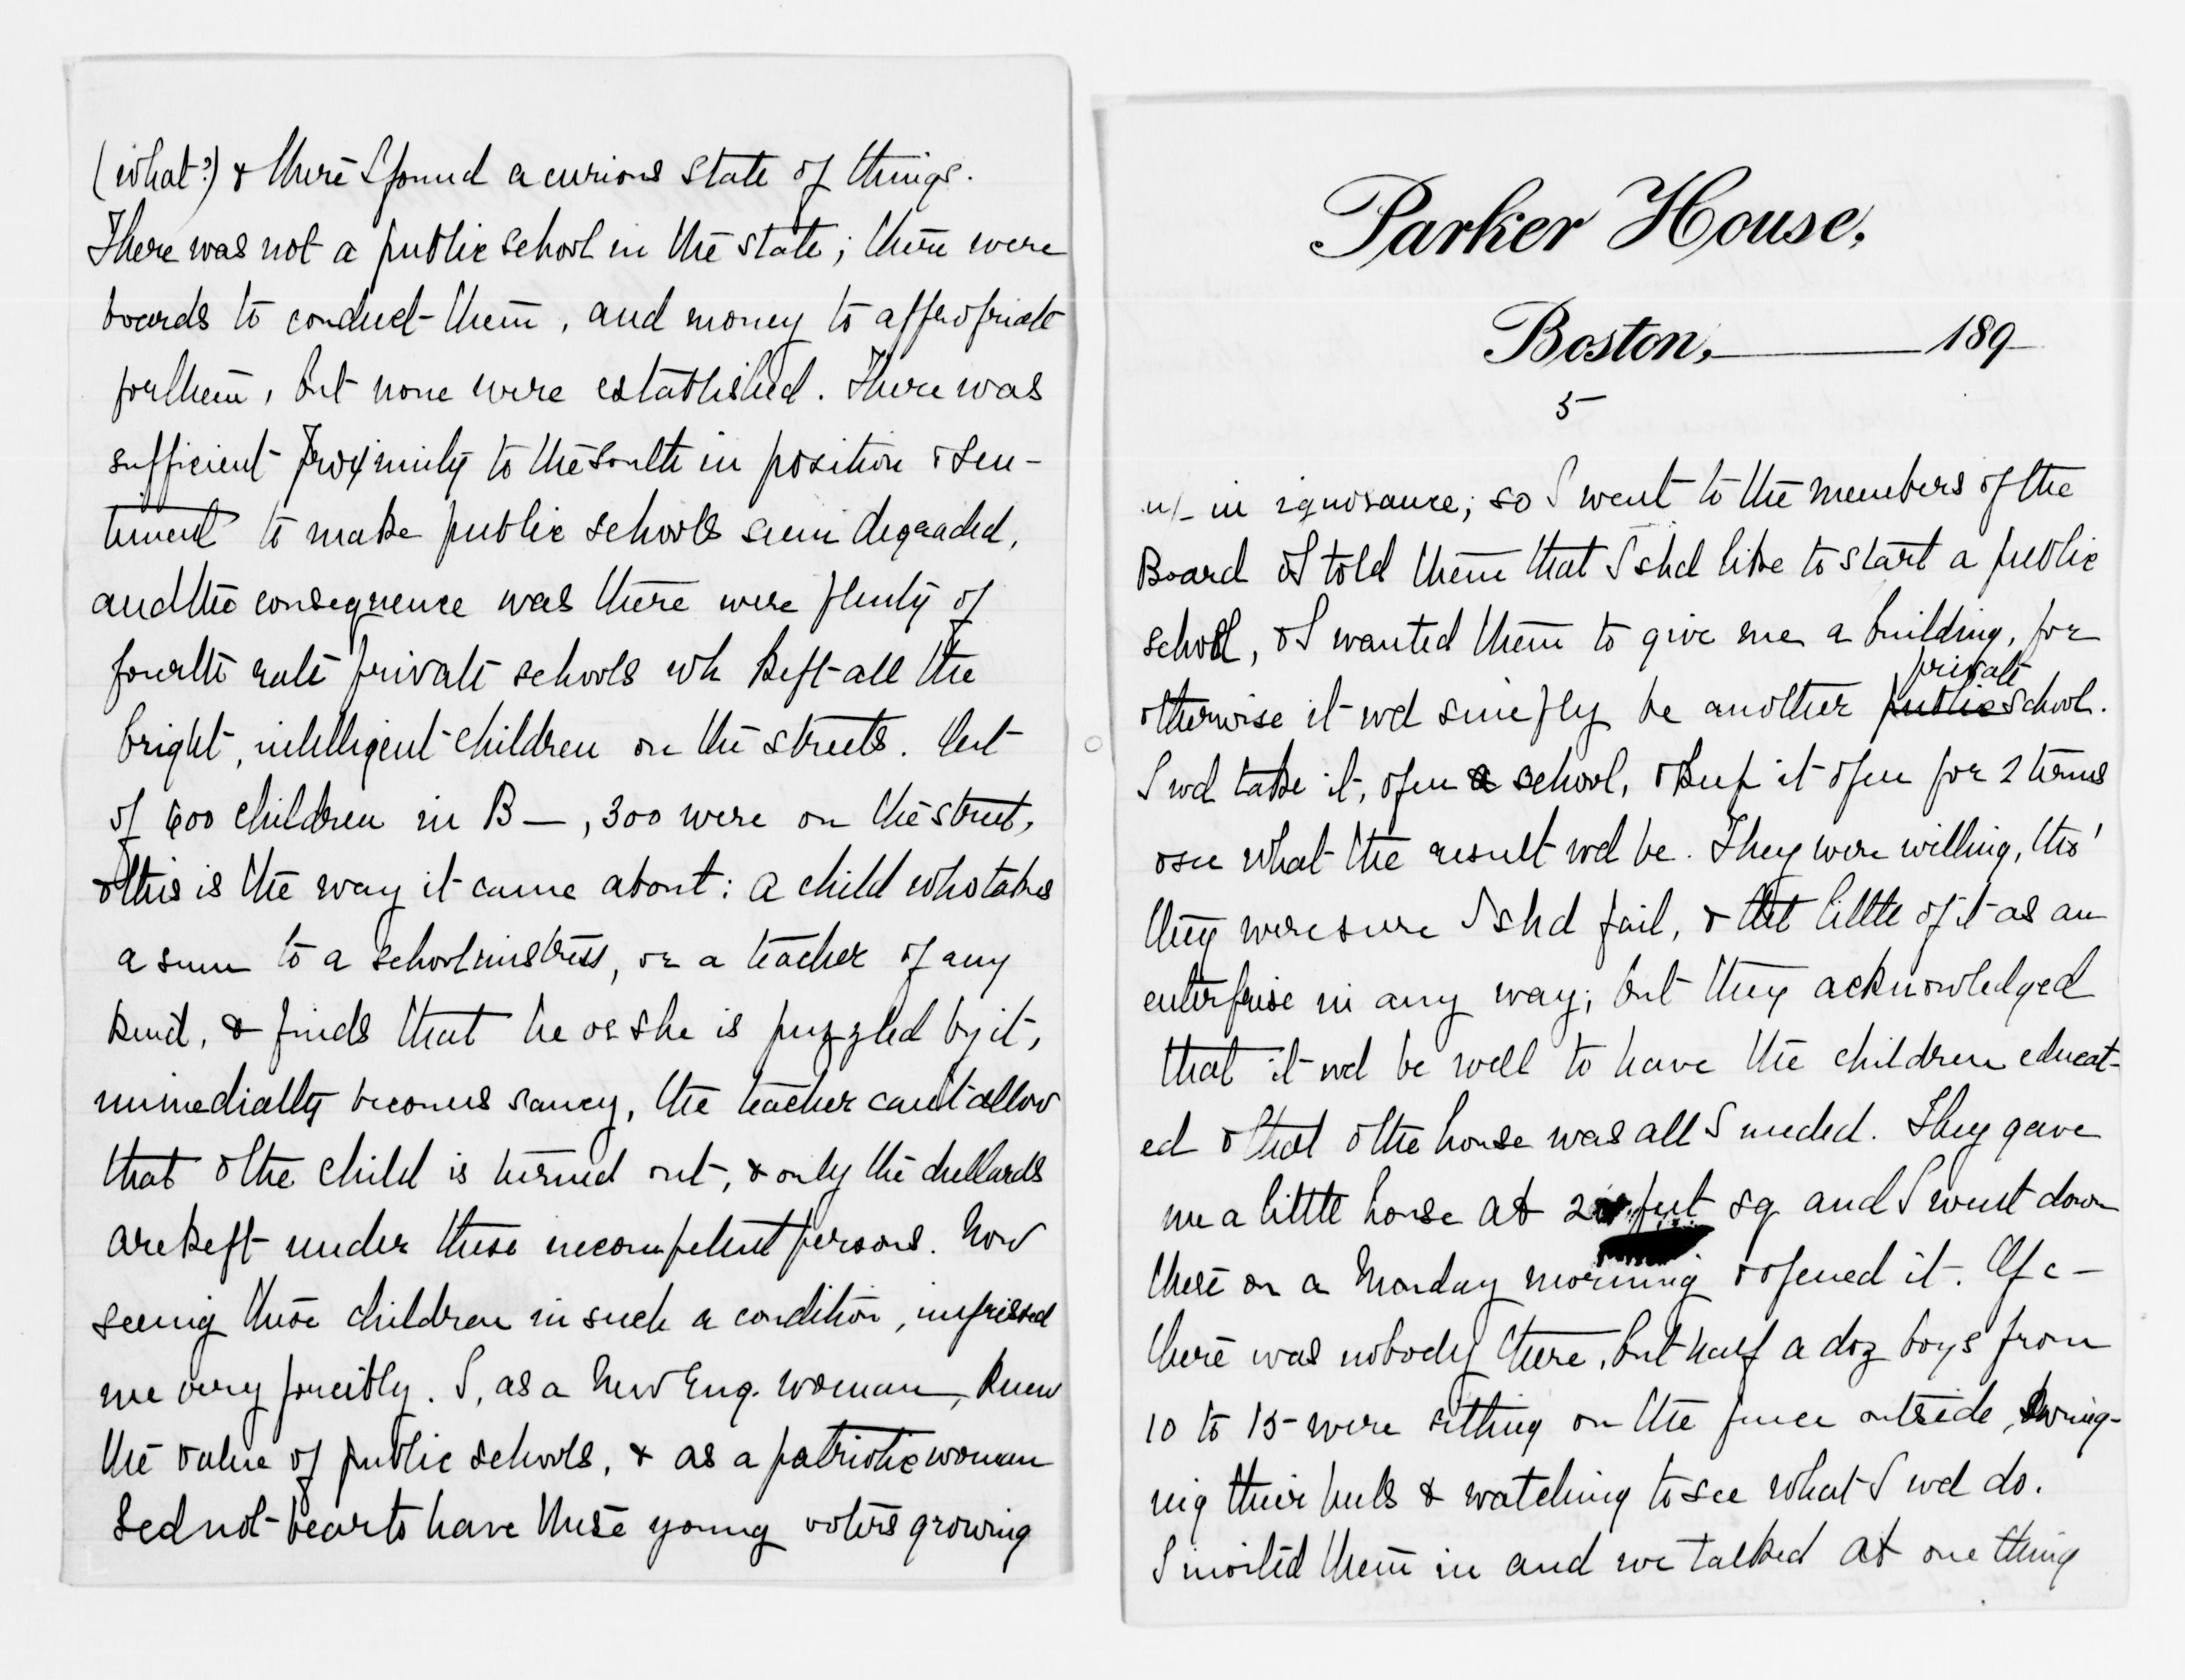 (what?) & there I found a curious state of things.
There was not a public school in the state; there were
boards to conduct them, and money to appropriate
for them, but none were established. There was
sufficient proximity to the south in position & sen-
timent to make public schools seem degraded,
and the consequence was there were plenty of
fourth rate private schools wh kept all the
bright, intelligent children on the streets. Out
of 600 children in B—, 300 were on the street,
& this is the way it came about: a child who takes
a sum to a school mistress, or a teacher of any
kind, & finds that he or she is puzzled by it,
immediately becomes saucy, the teacher can't allow
that & the child is turned out, & only the dullards
are kept under these incompetent persons. Now
seeing these children in such a condition, impressed
me very forcibly. I, as a New Eng. woman, knew
the value of public schools, & as a patriotic woman
I cd not bear to have these young voters growing
Parker House,
Boston, 189
5
up in ignorance; so I went to the members of the
Board & I told them that I shd like to start a public
school, & I wanted them to give me a building, for
private
otherwise it wd simply be another public school.
I wd take it, open a school, & keep it open for 2 terms
& see what the result wd be. They were willing, tho'
they were sure I shd fail, & tht little of it as an
enterprise in any way; but they acknowledged
that it wd be well to have the children educat-
ed & that & the house was all I needed. They gave
me a little house abt feet sq and I went down
there on a Monday morning & opened it. Of c—
there was nobody there, but half a doz boys from
10 to 15 were sitting on the fence outside, swing-
ing their heels & watching to see what I wd do.
I invited them in and we talked abt one thing